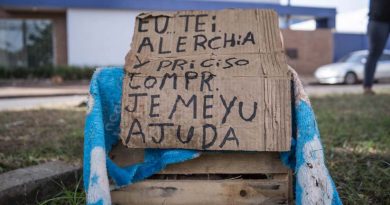 EU TEi
ALERCHiA
Y PRiCiSO
COMPR.
JE MEYU
AJUDA